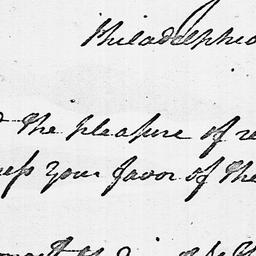 Philadelphia
the pleasure of re
ness your favor of the